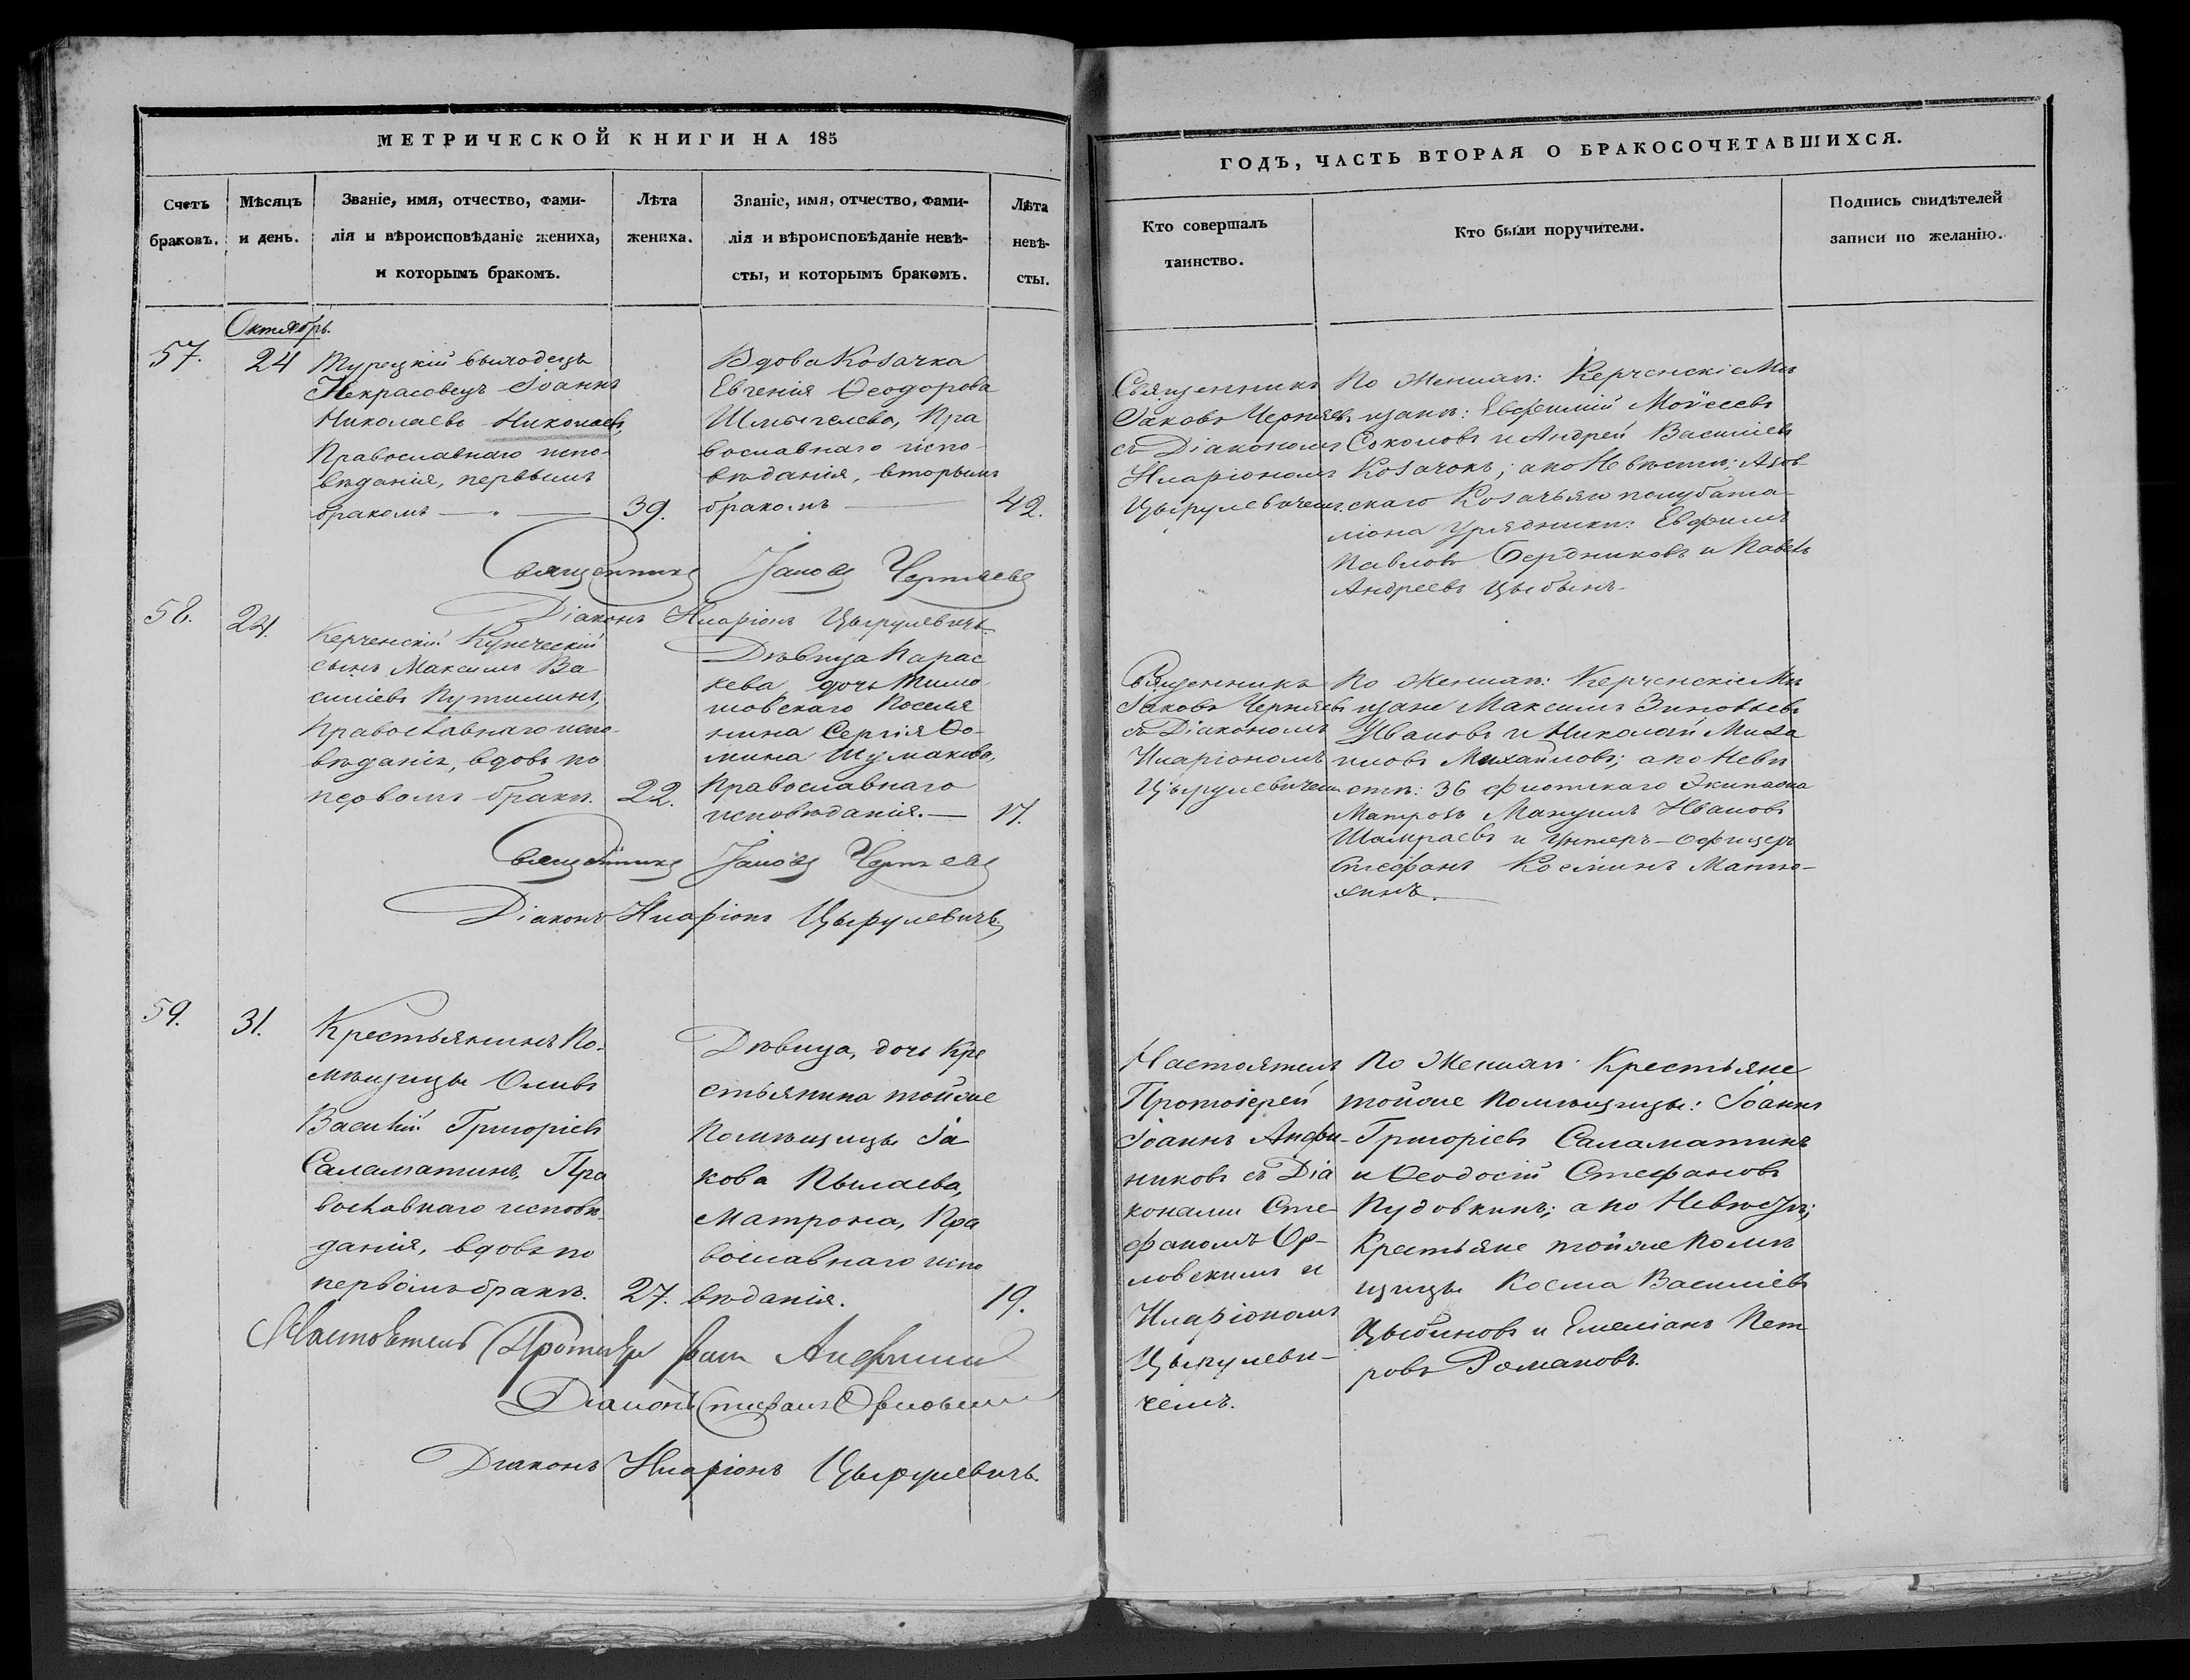 МЕТРИЧЕСКОЙ КНИГИ НА 185
Счетъ браковъ.
Мѣсяцъ и день.
Званіе, имя, отчество, фами-
лія и вѣроисповѣданіе жениха,
и которымъ бракомъ.
Лѣта жениха.
Званіе, имя, отчество, фами-
лія и вѣроисповѣданіе невѣ-
сты, и которымъ бракомъ.
Лѣта невѣ-
сты.
ГОДЪ, ЧАСТЬ ВТОРАЯ О БРАКОСОЧЕТАВШИХСЯ.
Кто совершалъ
таинство.
Кто были поручители.
Подпись свидѣтелей
записи по желанію.
Октябрь.
57.
24
Турецкій выходецъ
Некрасовецъ Іоаннъ
Николаевъ Николаевъ,
Православнаго испо-
вѣданія, первымъ
бракомъ
39.
Вдова Козачка
Евгенія Ѳеодорова
Православнаго испо-
вѣданія, вторымъ
бракомъ
42.
Священникъ
Іаковъ Черняевъ
съ Діакономъ
Иларіономъ
Цырулевичемъ.
По Женихѣ: Керченскіе Мѣ
щане: Евфимій Мойсеевъ
Соколовъ и Андрей Василіевъ
Козачокъ; а по Невѣстѣ: Азов
скаго Козачьяго полубата-
ліона Урядники: Евфимъ
Павловъ Бердниковъ и Павелъ
Андреевъ Цыбинъ.
Священникъ Іаковъ Черняевъ
Діаконъ Иларіонъ Цырулевичъ.
58.
24.
Керченскій Купеческій
сынъ Максимъ Ва
силіевъ Путилинъ,
Православнаго испо-
вѣданія, вдовъ по
первомъ бракѣ.
22.
Дѣвица Парас
кева, дочь Тимо
шовскаго Поселя
нина Сергія Ѳо-
мина Шумакова,
Православнаго
исповѣданія.
17.
Священникъ
Іаковъ Черняевъ
съ Діакономъ
Иларіономъ
Цырулевичемъ
По Женихѣ: Керченскіе Мѣ
щане Максимъ Зиновьевъ
Ивановъ и Николай Миха
иловъ Михайловъ; а по Невѣ
стѣ: 36 флотскаго Экипажа
Матросъ Мануилъ Ивановъ
Шамраевъ и Унтеръ-офицеръ
Стефанъ Косминъ Матю-
хинъ.
Священникъ Іаковъ Черняевъ
Діаконъ Иларіонъ Цырулевичъ
59.
31.
Крестьянинъ По-
мѣщицы Оливъ
Василій Григоріевъ
Саламатинъ, Пра
вославнаго исповѣ
данія, вдовъ по
первомъ бракѣ.
27.
Дѣвица, дочь Кре
стьянина тойже
Помѣщицы Іа
кова Пылаева,
Матрона, Пра
вославнаго испо
вѣданія.
19.
Настоятель
Протоіерей
Іоаннъ Анфи-
никовъ съ Діа
конами Сте-
фаномъ Ор-
ловскимъ и
Иларіономъ
Цырулеви-
чемъ.
По Женихѣ: Крестьяне
тойже Помѣщицы: Іоаннъ
Григоріевъ Саламатинъ
и Ѳеодосій Стефановъ
Пудовкинъ; а по Невѣстѣ;
Крестьяне тойже Помѣ
щицы Косма Василіевъ
Цыбиновъ и Емеліанъ Пет
ровъ Романовъ.
Настоятель Протоіерей Іоаннъ
Діаконъ Стефанъ Орловскій
Діаконъ Иларіонъ Цырулевичъ.